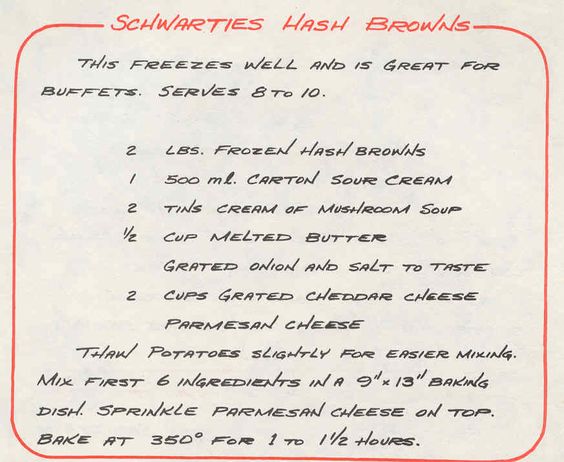 SCHWARTIES HASH BROWNS
THIS FREEZES WELL AND IS GREAT FOR
BUFFETS. SERVES 8 TO 10.
2 LBS. FROZEN HASH BROWNS
1 500 ml. CARTON SOUR CREAM
2 TINS CREAM OF MUSHROOM SOUP
½ CUP MELTED BUTTER
GRATED ONION AND SALT TO TASTE
2 CUPS GRATED CHEDDAR CHEESE
PARMESAN CHEESE
THAW POTATOES SLIGHTLY FOR EASIER MIXING.
MIX FIRST 6 INGREDIENTS IN A 9" x 13" BAKING
DISH. SPRINKLE PARMESAN CHEESE ON TOP.
BAKE AT 350° FOR 1 TO 1½ HOURS.